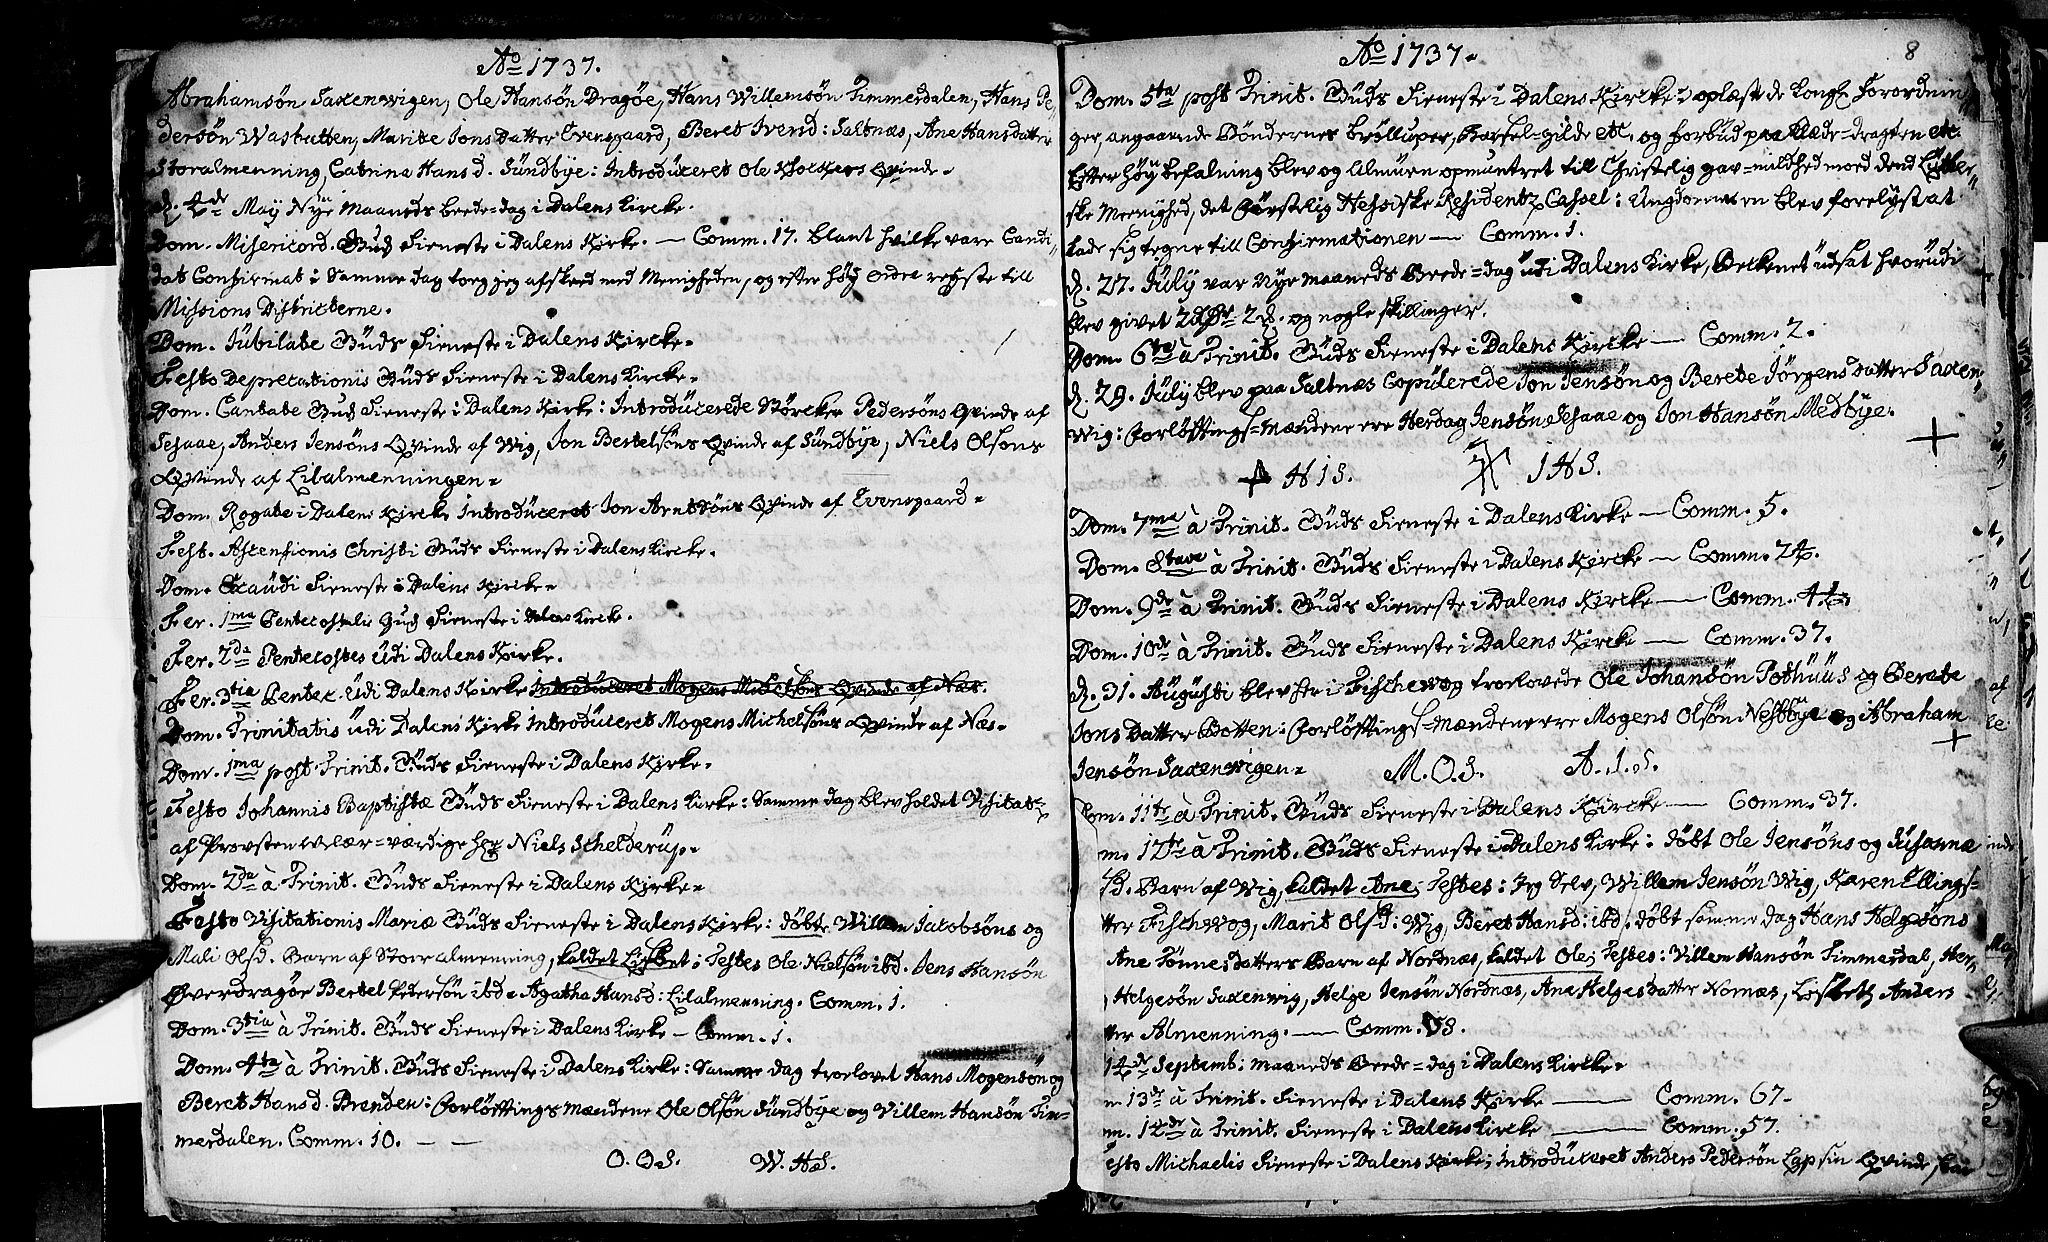 Ao 1737.
Abrahamsøn Saxenwigen, Ole Hansøn Dragøe, Hans Willemsøn Timmerdalen, Hans Pe-
dersøn Wasbutten, Marite Jons Datter Evensgaard, Beret Iversd: Saltnæs, Ane Hansdatter
Storalmenning, Catrina Hansd. Sundbye: Introduceret Ole Qvinde.
d. 4de May Nye Maaneds beede-dag i Dalens Kircke.
Dom. Misericord. Guds Tieneste i Dalens Kirke. — Comm. 17. blant hvilke vare Candi-
dat Confirmat: Samme dag toog jeg afskeed med Menigheden, og efter høy ordre reyste till
Missions Districterne.
Dom. Jubilate Guds Tieneste i Dalens Kircke.
Festo Deprecationis Guds Tieneste i Dalens Kircke.
Dom. Cantate Guds Tieneste i Dalens Kirke: Introducerede Störcker Pedersøns Qvinde af
Sesaae, Anders Jensøns Qvinde af Wig, Jon Bertelsøns Qvinde af Sundbye, Niels Olsøns
Qvinde af Lilalmenningen.
Dom. Rogate i Dalens Kircke Introduceret Jon Arntsøns Qvinde af Evensgaard.
Fest. Ascensionis Christi Guds Tieneste i Dalens Kircke.
Dom. Exaudi Tieneste i Dalens Kircke.
Fer. 1ma Pentecostalis Guds Tieneste i Dalens Kircke.
Fer. 2da Pentecostes udi Dalens Kirke.
Fer. 3tia Pentec. udi Dalens Kirke Introduceret Mogens Michelsøns Qvinde af Næs.
Dom. Trinitatis udi Dalens Kirke Introduceret Mogens Michelsøns Qvinde af Næs.
Dom. 1ma post Trinit. Guds Tieneste i Dalens Kirke.
Festo Johannis Baptistæ Guds Tieneste i Dalens Kirke: Samme dag blev holdet Visitatz
af Provsten velær-værdige Hr Niels Schelderup.
Dom. 2da à Trinit. Guds Tieneste i Dalens Kirke.
Festo Visitationis Mariæ Guds Tieneste i Dalens Kirke: døbt Willem Jacobsøns og
Mali Olsd. Barn af Storealmenning, kaldet Lisbet; Testes Ole Nielsøn ibd. Jens Hansøn
Øverdragøe Bertel Pedersøn ibd. Agatha Hansd: Lilalmenning. Comm. 1.
Dom. 3tia à Trinit. Guds Tieneste i Dalens Kirke — Comm. 1.
Dom. 4ta à Trinit. Guds Tieneste i Dalens Kirke: Samme dag troelovet Hans Mogensøn og
Beret Hansd. Brenden: Forløfftings mændene Ole Olsøn Sundbye og Villem Hansøn Tim-
merdalen. Comm. 10. — —
O. O. S. W. H. S.
Ao 1737.
8
Dom. 5ta post Trinit. Guds Tieneste i Dalens Kircke: oplæst de Kongl. Forordnin-
ger, angaaende Bøndernes brølluper, Barsel-gilde etc. og forbud paa Klæde-dragten etc.
Efter høy befalning blev og Almuen opmuntret till Christelig gav-mildhed mod dend Luther-
ske Meenighed, det Førstelig Hessiske Residentz Cassel: Ungdommen blev forelyst at
lade sig tegne till Confirmationen — Comm. 1.
d. 27. July var Nye maaneds Beede-dag udi Dalens Kirke, Beckenet udsat hvorudi
blev givet 2 dlr 2 og nogle skillinger.
Dom. 6ta à Trinit. Guds Tieneste i Dalens Kircke — Comm. 2.
d. 29. July blev paa Saltnæs Copulerede Jon Jensøn og Berete Jørgens Datter Saxen-
wig: Forløfftings-mændene ere Herdag Jensøn Sesaae og Jon Hansøn Medbye.
H I S. I H S.
Dom. 7ma à Trinit. Guds Tieneste i Dalens Kirke — Comm. 5.
Dom. 8tave à Trinit. Guds Tieneste i Dalens Kircke — Comm. 24.
Dom. 9de à Trinit. Guds Tieneste i Dalens Kircke — Comm. 44.
Dom. 10de à Trinit. Guds Tieneste i Dalens Kircke — Comm. 37.
d. 31. Augusti blev her i Fischewog troelovede Ole Johansøn Pothuus og Berete
Jons Datter Botten: Forløfftings-mændene ere Mogens Olsøn Nestbye og Abraham
Jensøn Saxenwigen. M. O. S. A. I. S.
Dom. 11te à Trinit. Guds Tieneste i Dalens Kircke — Comm. 37.
m. 12te à Trinit. Guds Tieneste i Dalens Kirke: døbt Ole Jensøns og Susanne
Barn af Wig, kaldet Ane; Testes: Jeg Selv, Willem Jensøn Wig, Karen Ellings-
tter Fischwog, Marit Olsd: Wig, Beret Hansd: ibd. døbt samme dag Hans Helgesøns
Ane Tønnesdatters Barn af Nordnæs, kaldet Ole; Testes: Villem Hansøn Timmerdal, Her-
Helgesøn Saxenwig, Helge Jensøn Nordnæs, Ane Helgesdatter Nornæs, Lisbeth Anders
tter Almenning. — Comm. 58.
14de Septemb: maaneds Beede-dag i Dalens Kircke.
m 13de à Trinit. Tieneste i Dalens Kirke — Comm. 67.
m. 14de à Trinit. Tieneste i Dalens Kircke — Comm. 57.
esto Michaelis Tieneste i Dalens Kirke; Introduceret Anders Pedersøn Qvinde,